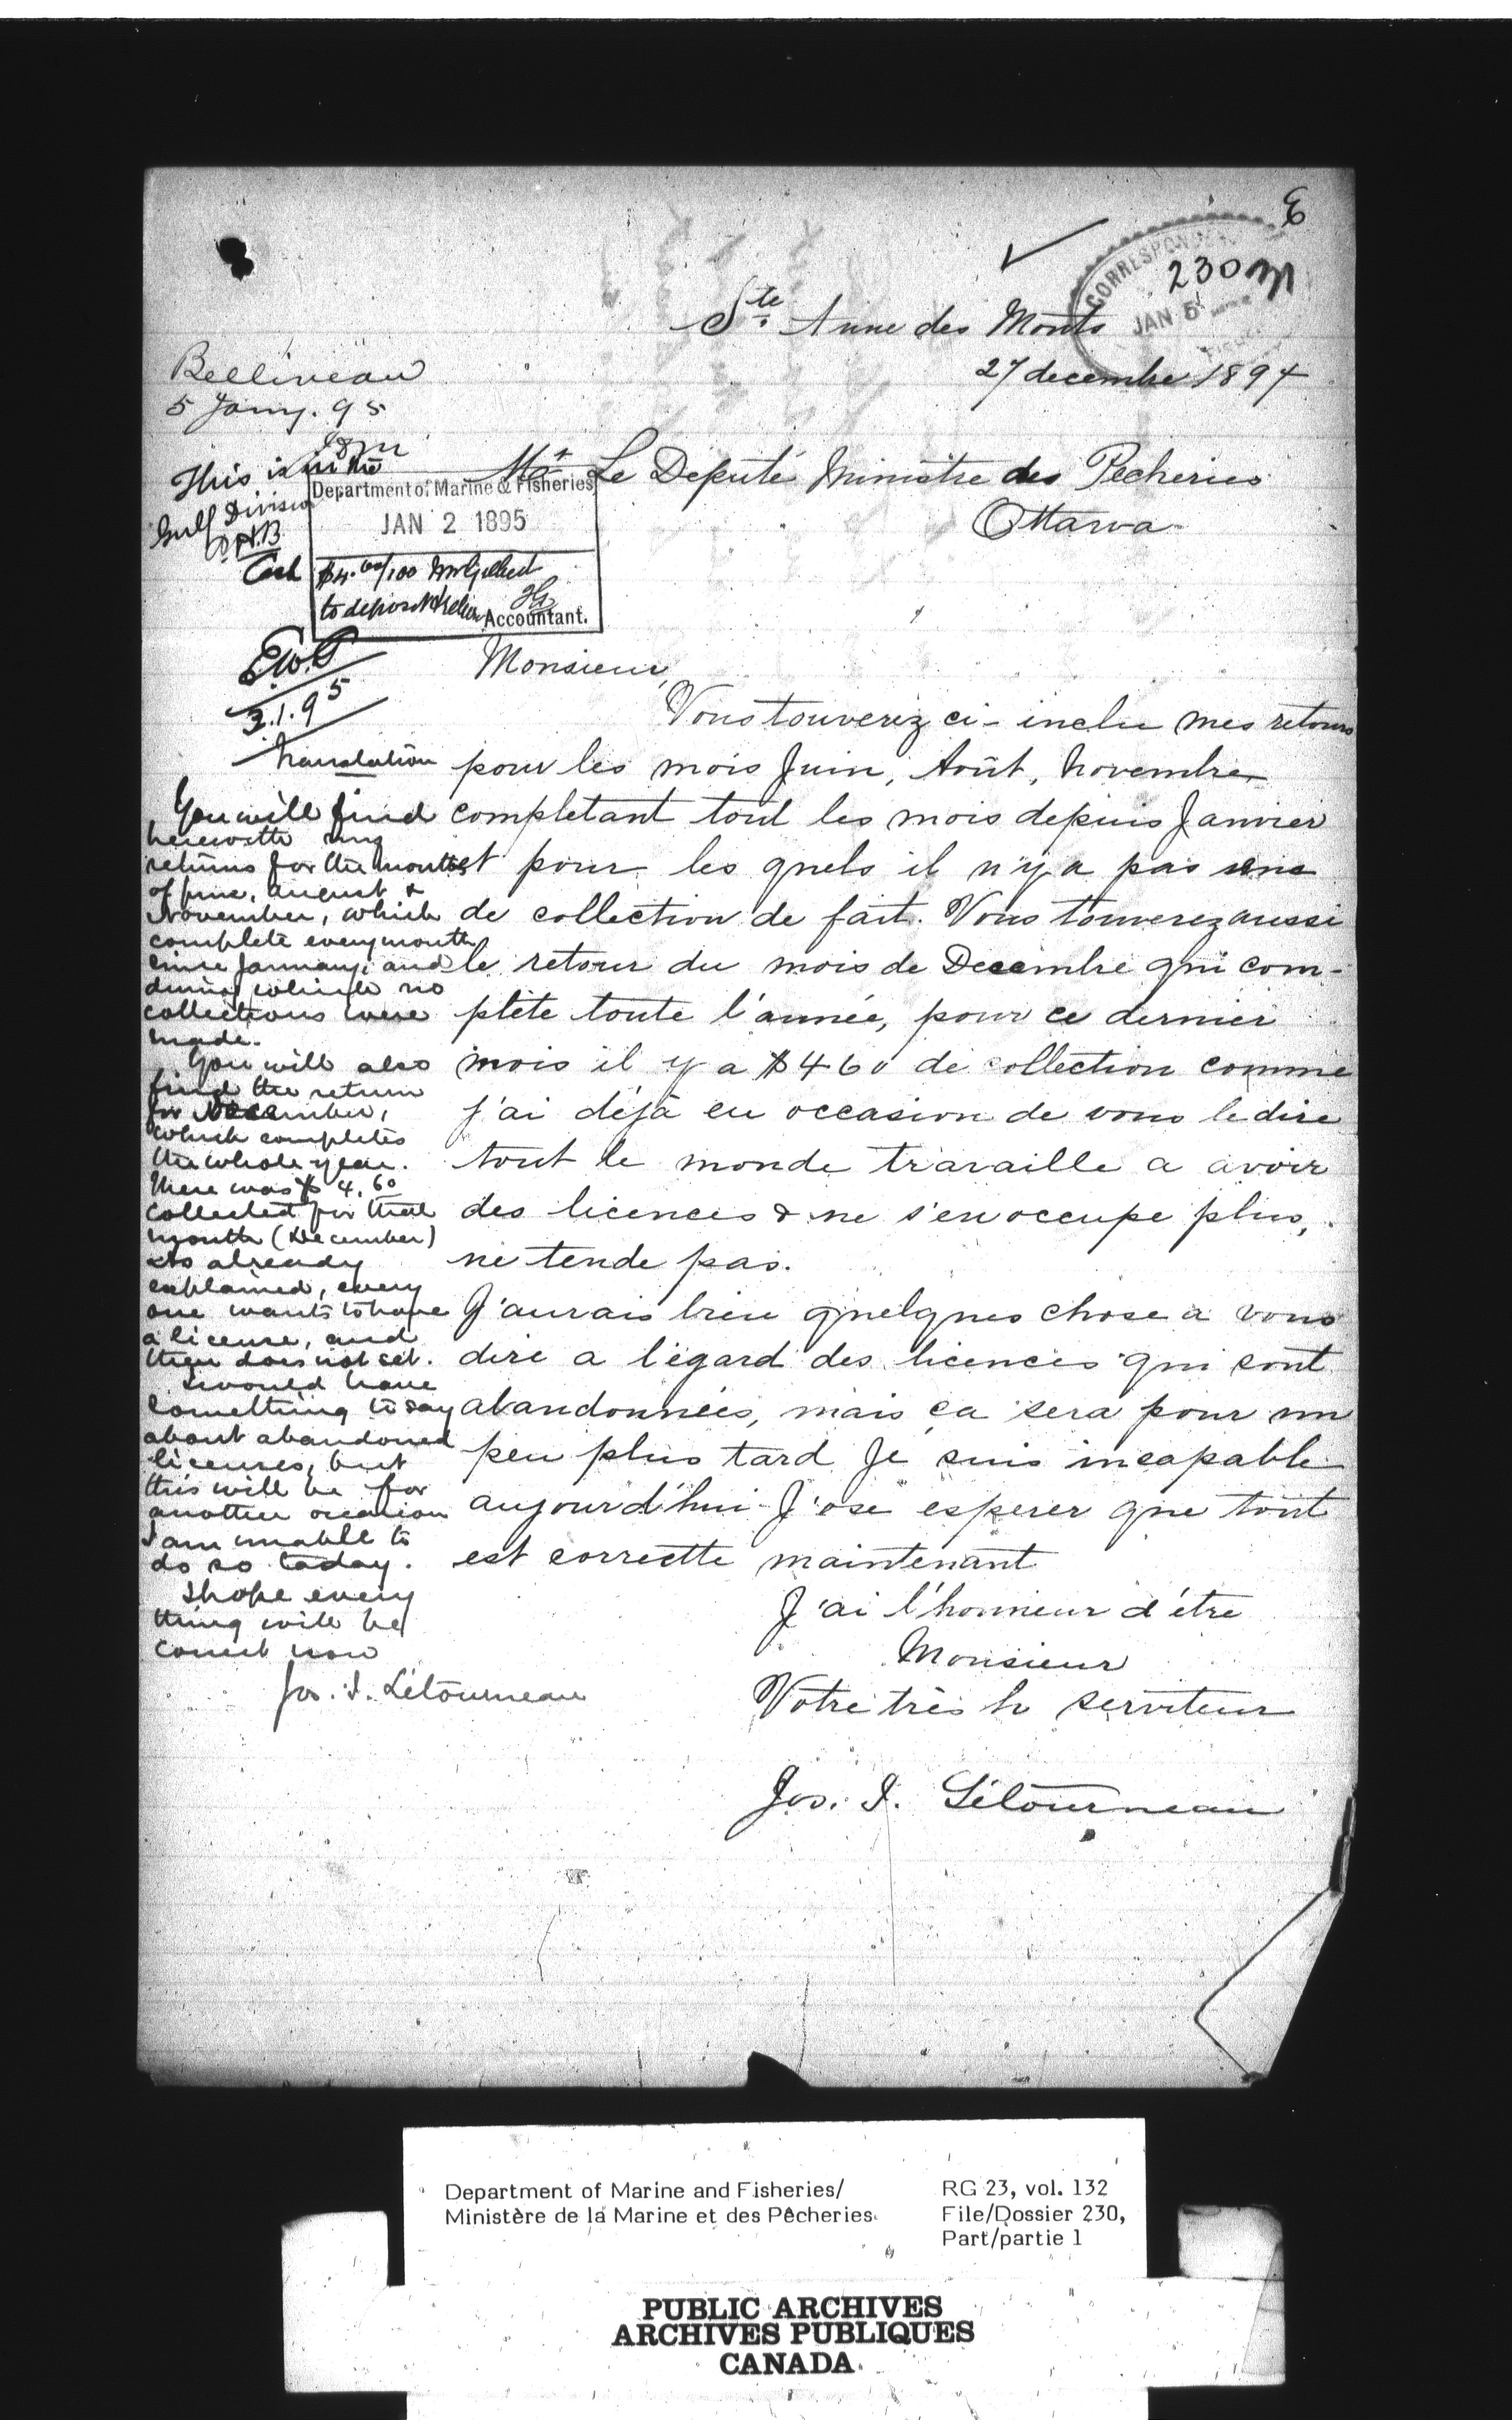 E
CORRESPONDEN
230 M
JAN 5
Ste. Anne des Monts
27 decembre 1894
Belliveau
5 Jany. 95
This is in the
Gulf Division
Department of Marine & Fisheries
JAN 2 1895
$4.60/100 Mr Gilbert
to deposit
Accountant.
E.W.G
3.1.95
Le Deputé Ministre des Pecheries
Ottawa
Monsieur,
Vous touverez ci-inclu mes retours
pour les mois Juin, Août, Novembre
completant tout les mois depuis Janvier
et pour les quels il n'y a pas une
de collection de fait. Vous touverez aussi
le retour du mois de Decembre qui com-
plète toute l'année, pour ce dernier
mois il y a $4 60 de collection comme
j'ai déjà eu occasion de vous le dire
tout le monde travaille a avoir
des licences & ne s'en occupe plus,
ne tende pas.
J'aurais bien quelques chose a vous
dire a l'égard des licences qui sont
abandonnées, mais ça sera pour un
peu plus tard Je suis incapable
aujourd'hui - J'ose esperer que tout
est correctte maintenant
J'ai l'honneur d'être
Monsieur
Votre très h serviteur
Jos. I. Létourneau
Translation
You will find
herewith my
returns for the months
of June, August &
November, which
complete every month
since January, and
during which no
collections were
made.
You will also
find the return
for December,
which completes
the whole year.
There was $4.60
collected for that
month (December)
As already
explained, every
one wants to have
a license, and
then does not set.
I would have
something to say
about abandoned
licenses, but
this will be for
another occasion
I am unable to
do so today.
I hope every
thing will be
correct now
Jos. I. Létourneau
Department of Marine and Fisheries/
Ministère de la Marine et des Pêcheries
RG 23, vol. 132
File/Dossier 230,
Part/partie 1
PUBLIC ARCHIVES
ARCHIVES PUBLIQUES
CANADA